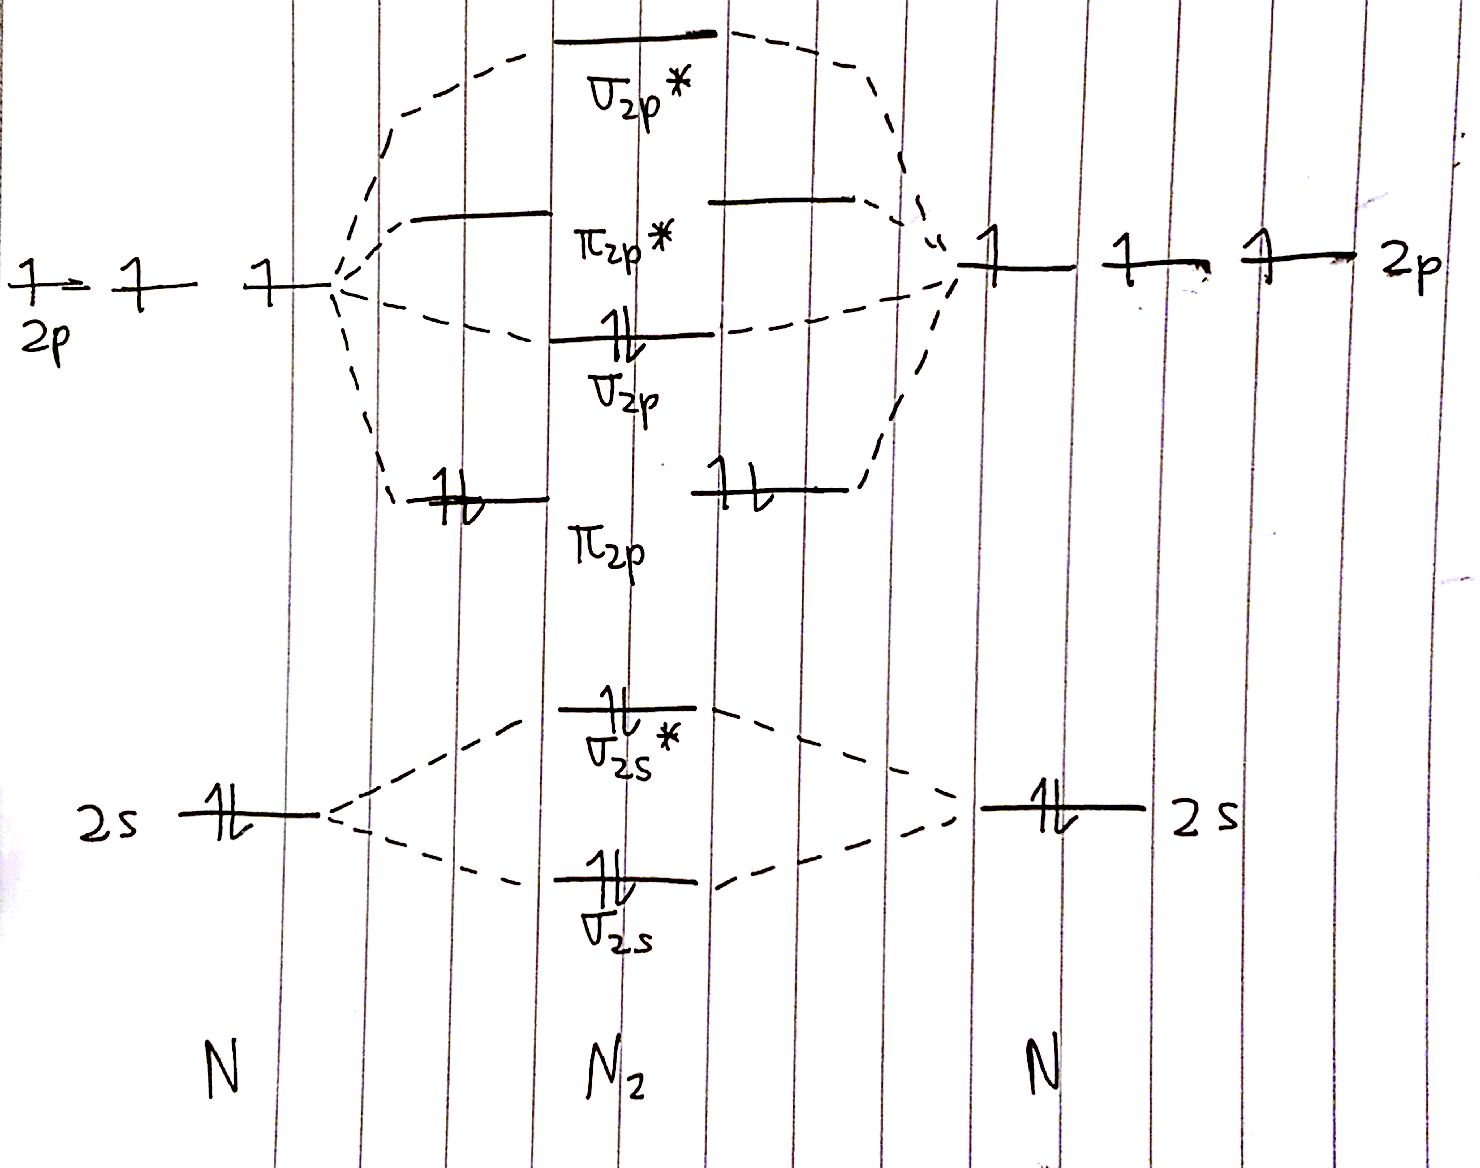 σ₂ₚ*
π₂ₚ*
2p
2p
σ₂ₚ
π₂ₚ
σ₂ₛ*
2s
2s
σ₂ₛ
N N₂ N